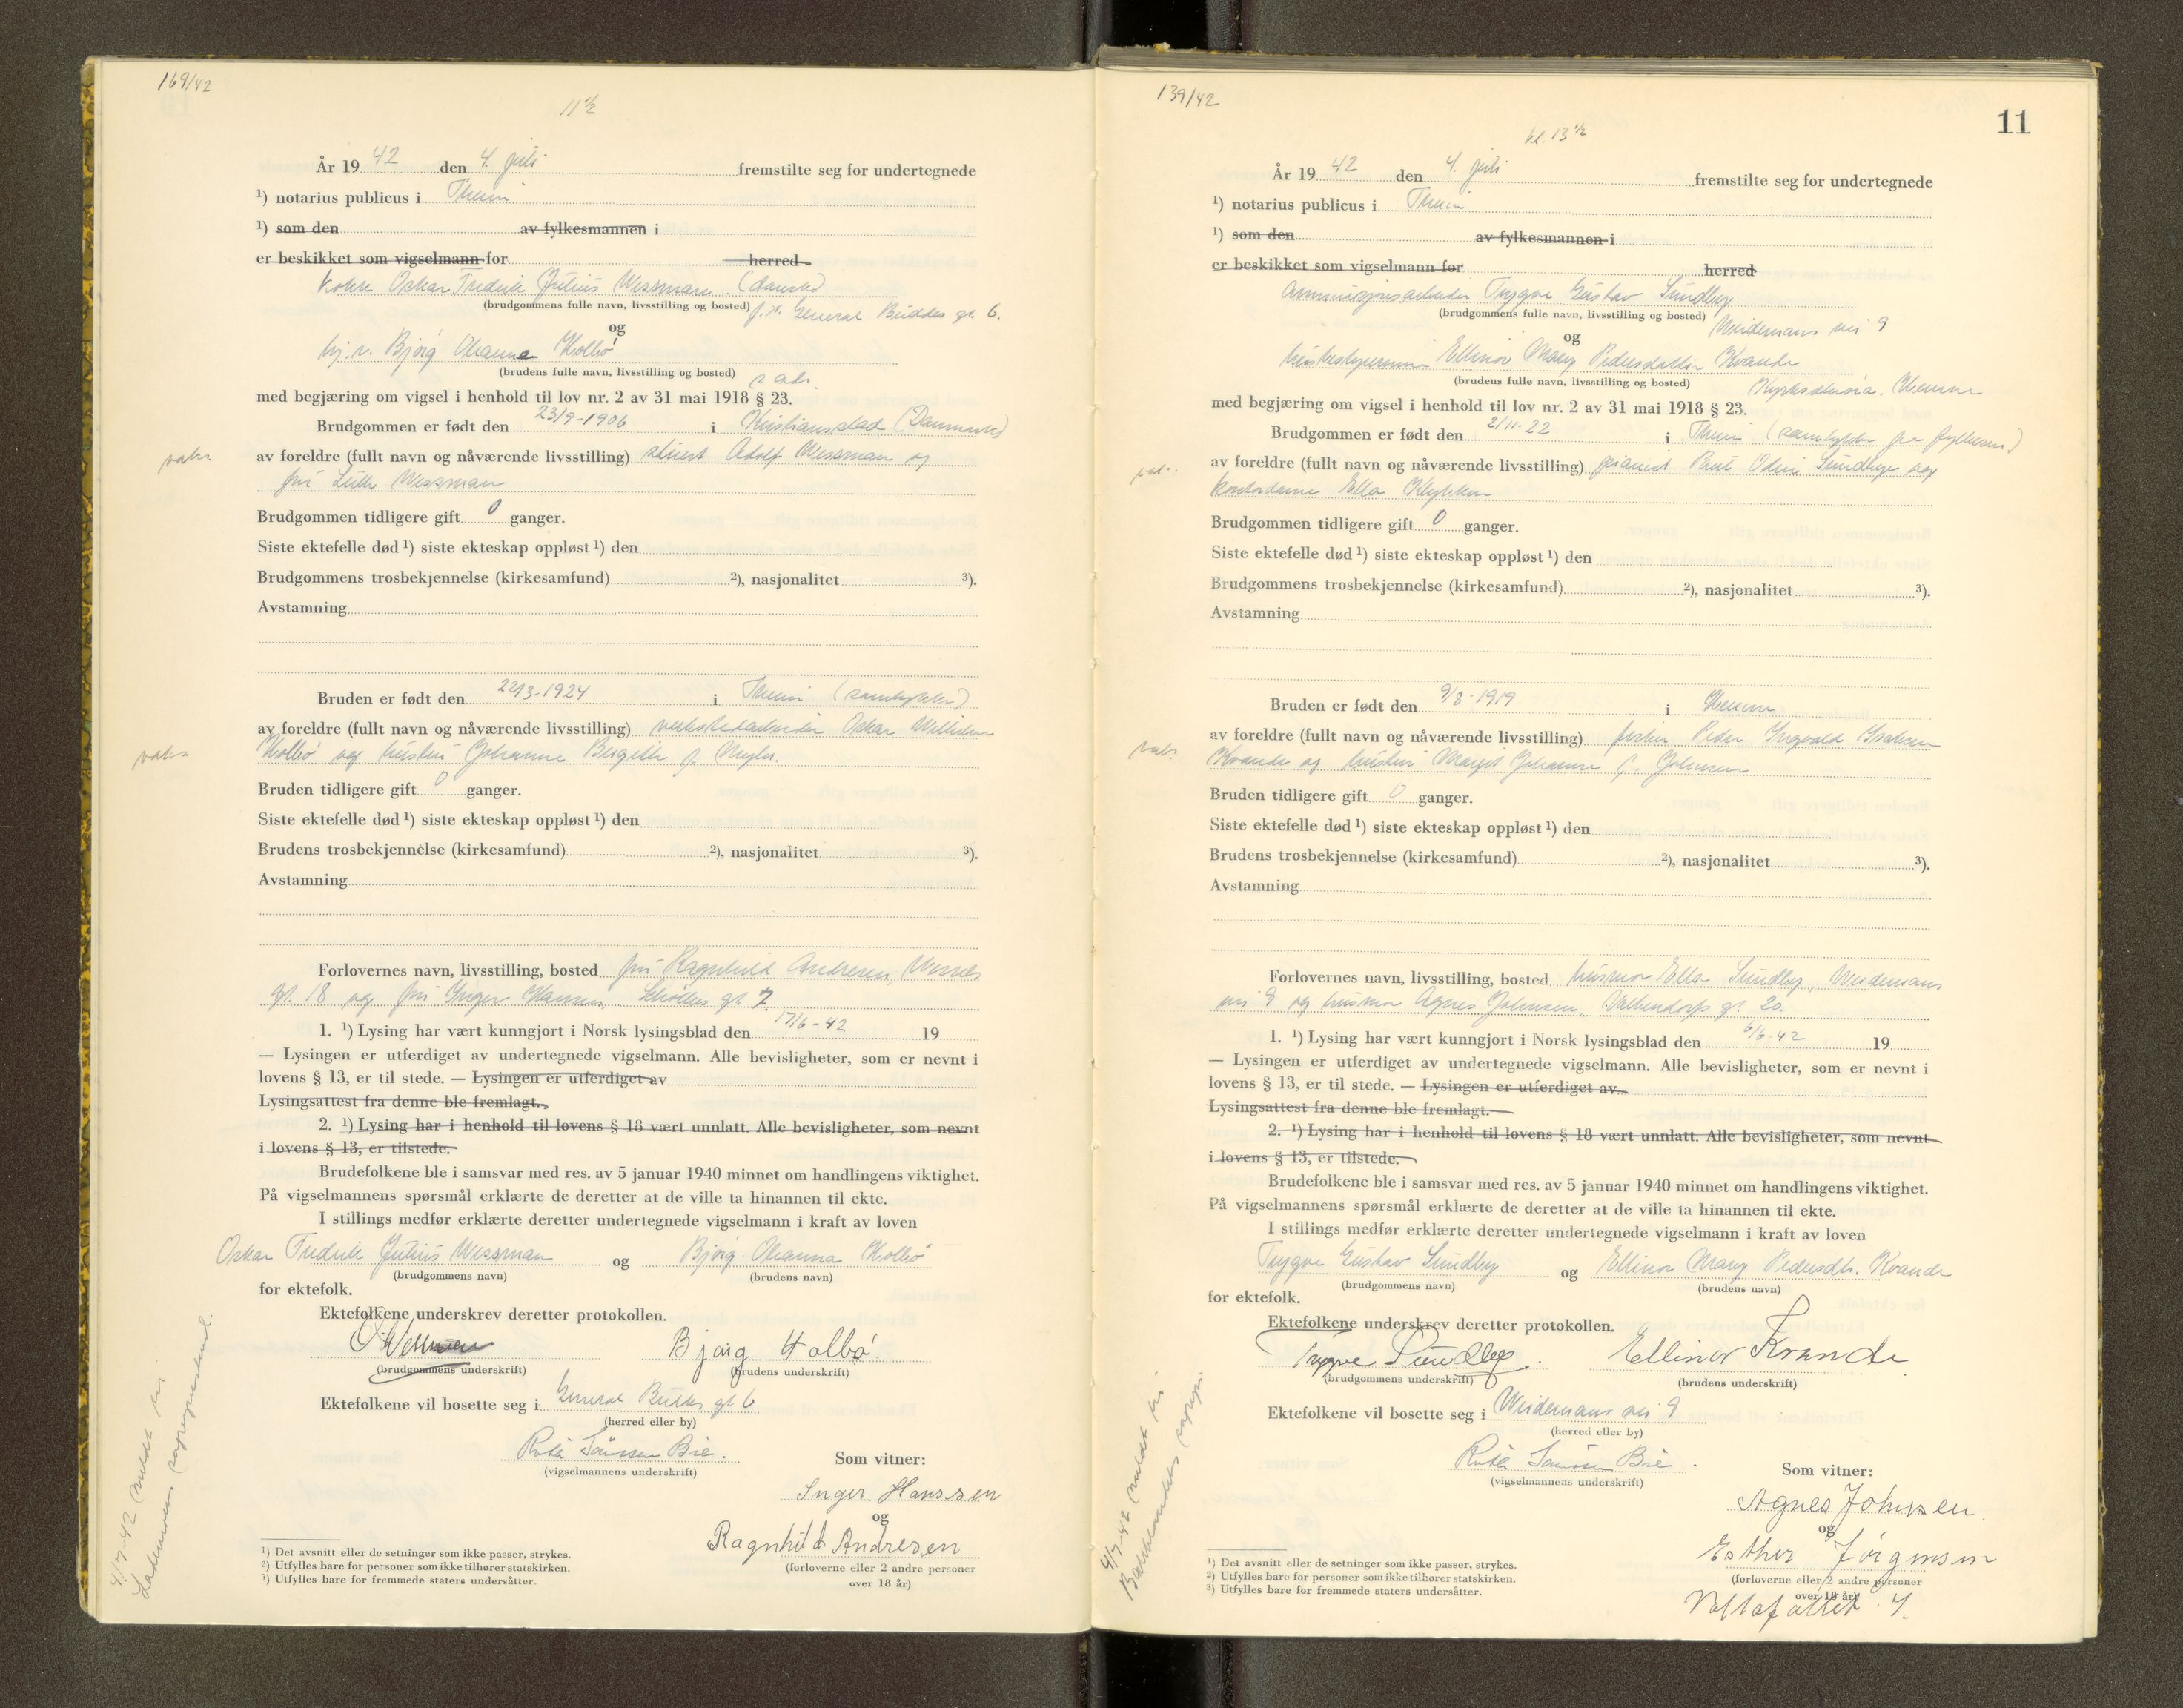 169/42
11 1/2
År 19 42 den 4. juli fremstilte seg for undertegnede
¹) notarius publicus i Thrm
¹) som den av fylkesmannen i
er beskikket som vigselmann for herred
kokk Oskar Fredrik Julius Wessman (dansk)
(brudgommens fulle navn, livsstilling og bosted) General Buddes gt. 6.
og
Bjørg Ohanna Holbø
(brudens fulle navn, livsstilling og bosted) s. ads.
med begjæring om vigsel i henhold til lov nr. 2 av 31 mai 1918 § 23.
Brudgommen er født den 23/9-1906 i Kristiansstad (Danmark)
av foreldre (fullt navn og nåværende livsstilling) stuert Adolf Wessman og
fru Wessman
Brudgommen tidligere gift 0 ganger.
Siste ektefelle død ¹) siste ekteskap oppløst ¹) den
Brudgommens trosbekjennelse (kirkesamfund) ²), nasjonalitet ³).
Avstamning
Bruden er født den 22/3-1924 i Thrm (samtykke)
av foreldre (fullt navn og nåværende livsstilling) verkstedarbeider Oskar Wilhelm
Holbø og hustru Johanne Bergitte f.
Bruden tidligere gift 0 ganger.
Siste ektefelle død ¹) siste ekteskap oppløst ¹) den
Brudens trosbekjennelse (kirkesamfund) ²), nasjonalitet ³).
Avstamning
Forlovernes navn, livsstilling, bosted fru Ragnhild Andresen, Wessels
gt. 18 og fru Inger Hanssen, gt. 7.
1. ¹) Lysing har vært kunngjort i Norsk lysingsblad den 17/6-42 19
— Lysingen er utferdiget av undertegnede vigselmann. Alle bevisligheter, som er nevnt i
lovens § 13, er til stede. — Lysingen er utferdiget av
Lysingsattest fra denne ble fremlagt.
2. ¹) Lysing har i henhold til lovens § 18 vært unnlatt. Alle bevisligheter, som nevnt
i lovens § 13, er tilstede.
Brudefolkene ble i samsvar med res. av 5 januar 1940 minnet om handlingens viktighet.
På vigselmannens spørsmål erklærte de deretter at de ville ta hinannen til ekte.
I stillings medfør erklærte deretter undertegnede vigselmann i kraft av loven
Oskar Fredrik Julius Wessman og Bjørg Ohanna Holbø
(brudgommens navn) (brudens navn)
for ektefolk.
Ektefolkene underskrev deretter protokollen.
O Wessman Bjørg Holbø
(brudgommens underskrift) (brudens underskrift)
Ektefolkene vil bosette seg i General Buddes gt 6
(herred eller by)
Ruth Sanssen Bie.
(vigselmannens underskrift) Som vitner:
Inger Hanssen
og
Ragnhild Andresen
(forloverne eller 2 andre personer
over 18 år)
¹) Det avsnitt eller de setninger som ikke passer, strykes.
²) Utfylles bare for personer som ikke tilhører statskirken.
³) Utfylles bare for fremmede staters undersåtter.
4/7-42 meldt til
Lademoens sogneprest.
139/42
11
kl. 13 1/2
År 19 42 den 4. juli fremstilte seg for undertegnede
¹) notarius publicus i Thrm
¹) som den av fylkesmannen i
er beskikket som vigselmann for herred
Ammunisjonsarbeider Trygve Gustav Sundby
(brudgommens fulle navn, livsstilling og bosted) Weidemans vei 9
og
husbestyrerinne Ellinor Mary Pedersdatter Kvande
(brudens fulle navn, livsstilling og bosted) Hemne
med begjæring om vigsel i henhold til lov nr. 2 av 31 mai 1918 § 23.
Brudgommen er født den 2/11-22 i Thrm (samtykke fra fylkesm)
av foreldre (fullt navn og nåværende livsstilling) pianist Paul Odin Sundbye og
kontordame Ella Klykken
Brudgommen tidligere gift 0 ganger.
Siste ektefelle død ¹) siste ekteskap oppløst ¹) den
Brudgommens trosbekjennelse (kirkesamfund) ²), nasjonalitet ³).
Avstamning
Bruden er født den 9/8-1919 i Hemne
av foreldre (fullt navn og nåværende livsstilling) fisker Peder Ingvald Isaksen
Kvande og hustru Margit Johanne f. Johnsen
Bruden tidligere gift 0 ganger.
Siste ektefelle død ¹) siste ekteskap oppløst ¹) den
Brudens trosbekjennelse (kirkesamfund) ²), nasjonalitet ³).
Avstamning
Forlovernes navn, livsstilling, bosted husmor Ella Sundby, Weidemans
vei 9 og husmor Agnes Johnsen, gt. 20.
1. ¹) Lysing har vært kunngjort i Norsk lysingsblad den 6/6-42 19
— Lysingen er utferdiget av undertegnede vigselmann. Alle bevisligheter, som er nevnt i
lovens § 13, er til stede. — Lysingen er utferdiget av
Lysingsattest fra denne ble fremlagt.
2. ¹) Lysing har i henhold til lovens § 18 vært unnlatt. Alle bevisligheter, som nevnt
i lovens § 13, er tilstede.
Brudefolkene ble i samsvar med res. av 5 januar 1940 minnet om handlingens viktighet.
På vigselmannens spørsmål erklærte de deretter at de ville ta hinannen til ekte.
I stillings medfør erklærte deretter undertegnede vigselmann i kraft av loven
Trygve Gustav Sundby og Ellinor Mary Pedersdtr. Kvande
(brudgommens navn) (brudens navn)
for ektefolk.
Ektefolkene underskrev deretter protokollen.
Trygve Sundby. Ellinor Kvande
(brudgommens underskrift) (brudens underskrift)
Ektefolkene vil bosette seg i Weidemans vei 9
(herred eller by)
Ruth Sanssen Bie.
(vigselmannens underskrift) Som vitner:
Agnes Johnsen
og
Esther Jørgensen
(forloverne eller 2 andre personer
over 18 år)
¹) Det avsnitt eller de setninger som ikke passer, strykes.
²) Utfylles bare for personer som ikke tilhører statskirken.
³) Utfylles bare for fremmede staters undersåtter.
4/7-42 meldt til
Bakklandets sognepr.